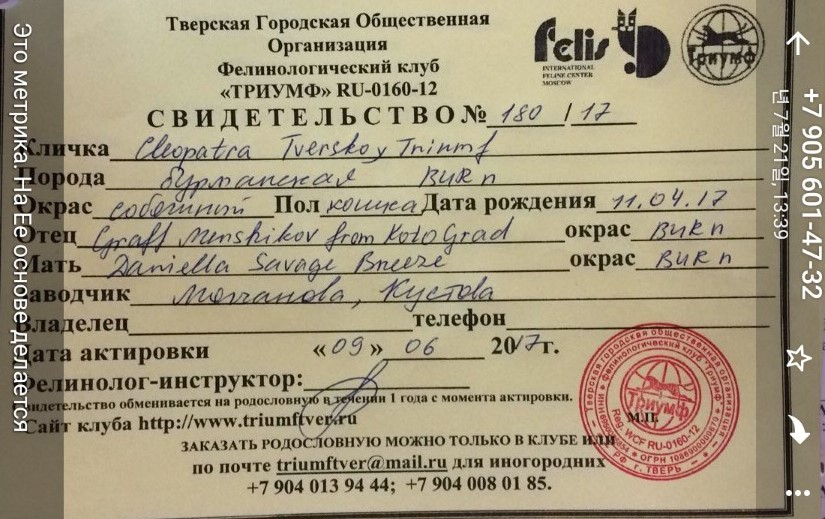 Тверская Городская Общественная
Организация
Фелинологический клуб
«ТРИУМФ» RU-0160-12
felis
INTERNATIONAL
FELINE CENTER
MOSCOW
Триумф
СВИДЕТЕЛЬСТВО № 180 / 17
Кличка Cleopatra Tverskoy Triumf
Порода бурманская BUR n
Окрас соболиный Пол кошка Дата рождения 11.04.17
Отец Graff Menshikov from KotoGrad окрас BUR n
Мать Daniella Savage Breeze окрас BUR n
Заводчик Молчанова, Кустова
Владелец телефон
Дата актировки «09» 06 2017г.
Фелинолог-инструктор:
Свидетельство обменивается на родословную в течении 1 года с момента актировки.
М.П.
Сайт клуба http://www.triumftver.ru
ЗАКАЗАТЬ РОДОСЛОВНУЮ МОЖНО ТОЛЬКО В КЛУБЕ ИЛИ
по почте triumftver@mail.ru для иногородних
+7 904 013 94 44; +7 904 008 01 85.
Тверская городская общественная организация
Фелинологический клуб Триумф
Триумф
Reg. WCF RU-0160-12
РФ г. ТВЕРЬ
+7 905 601-47-32
년 7월 21일, 13:39
Это метрика. На Её основе делается